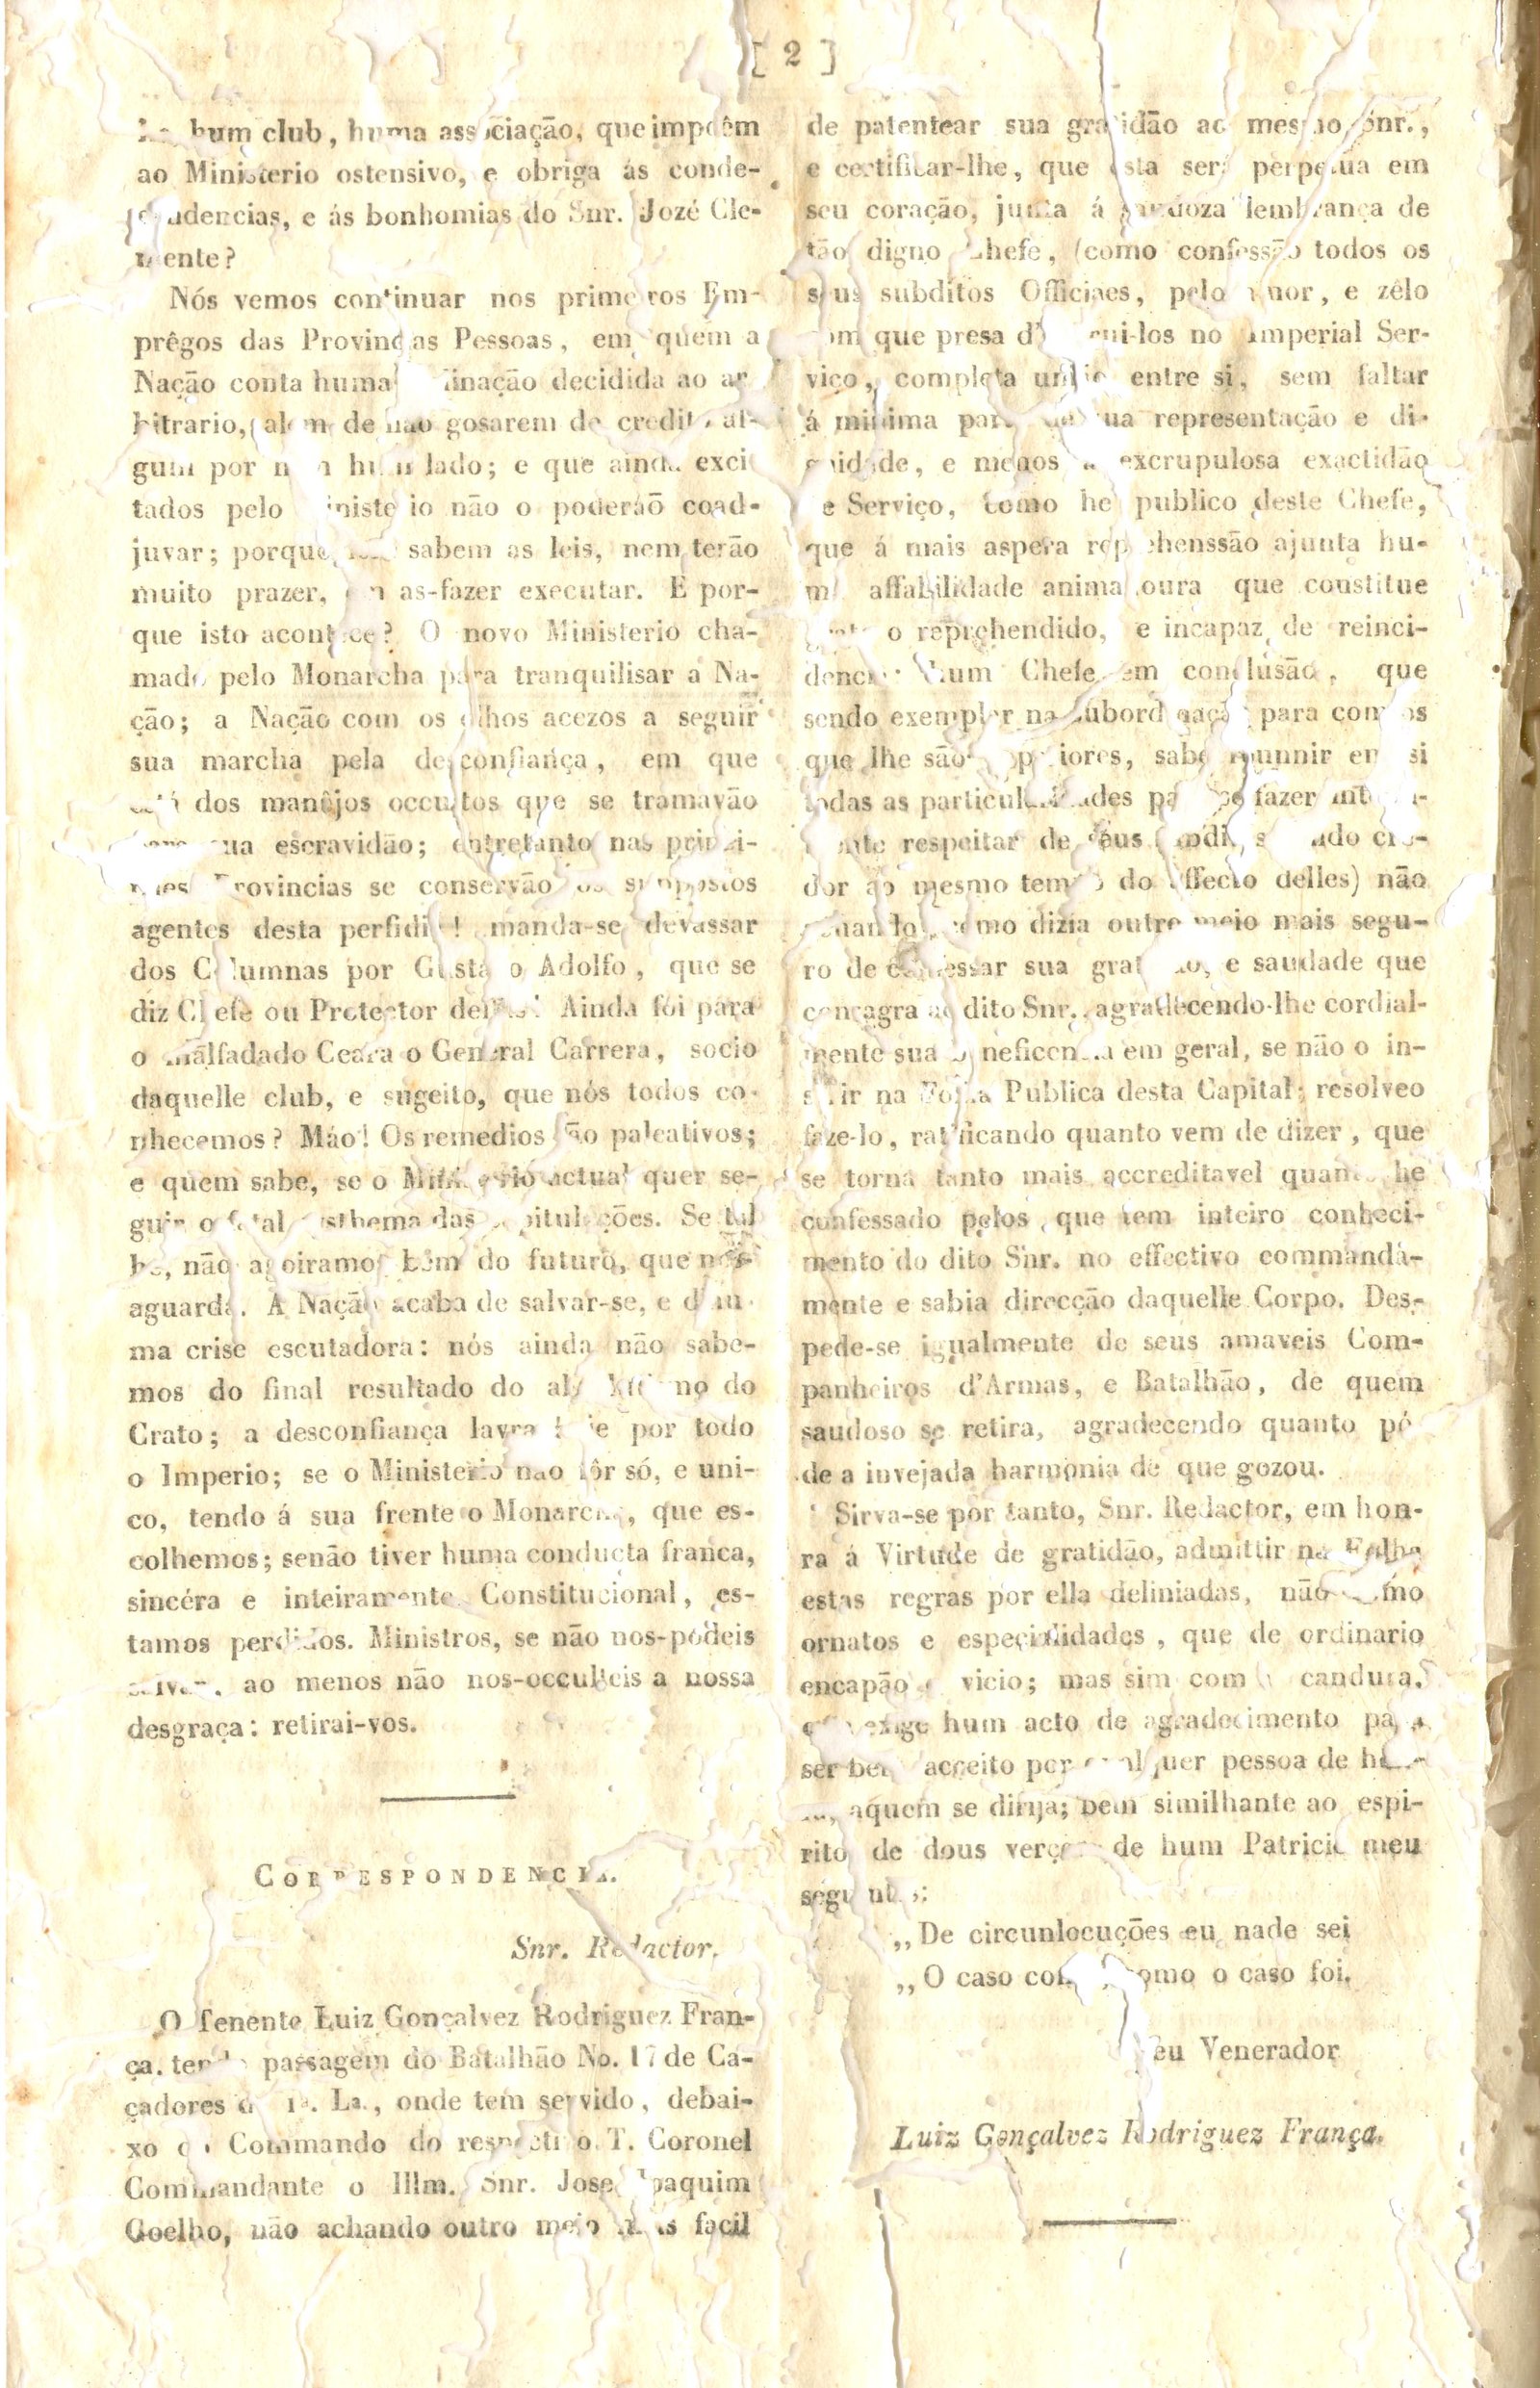 [ 2 ]
hum club, huma associação, que impoêm
ao Ministerio ostensivo, e obriga ás conde-
dencias, e ás bonhomias do Snr. Jozé Cle-
mente?
Nós vemos continuar nos primeiros Em-
prêgos das Provincias Pessoas, em quem a
Nação conta huma decidida ao ar
bitrario, alem de não gosarem de credito al-
gum por nenhum lado; e que ainda exci
tados pelo Ministerio não o poderáõ coad-
juvar; porque sabem as leis, nem terão
muito prazer, em as-fazer executar. E por-
que isto acontece? O novo Ministerio cha-
mado pelo Monarcha para tranquilisar a Na-
ção; a Nação com os olhos acezos a seguir
sua marcha pela desconfiança, em que
dos manêjos occultos que se tramavão
sua escravidão; entretanto nas princi-
Provincias se conservão os suppostos
agentes desta perfidia! manda-se devassar
dos Columnas por Gustavo Adolfo, que se
diz Chefe ou Protector Ainda foi para
o malfadado Ceara o General Carrera, socio
daquelle club, e sugeito, que nós todos co-
nhecemos? Máo! Os remedios são paleativos;
e quem sabe, se o Ministerio actual quer se-
guir o fatal das capitulações. Se tal
he, não agoiramos bem do futuro, que nos-
aguarda. A Nação acaba de salvar-se, e d'hu-
ma crise escutadora: nós ainda não sabe-
mos do final resultado do do
Crato; a desconfiança lavra hoje por todo
o Imperio; se o Ministerio não fôr só, e uni-
co, tendo á sua frente o Monarcha, que es-
colhemos; senão tiver huma conducta franca,
sincéra e inteiramente Constitucional, es-
tamos perdidos. Ministros, se não nos-podeis
salvar, ao menos não nos-occulteis a nossa
desgraça: retirai-vos.
CORRESPONDENCIA.
Snr. Redactor.
O Tenente Luiz Gonçalvez Rodriguez Fran-
ça, tendo passagem do Batalhão No. 17 de Ca-
çadores da 1a. La., onde tem servido, debai-
xo do Commando do respectivo T. Coronel
Commandante o Illm. Snr. Jose Joaquim
Coelho, não achando outro meio mais facil
de patentear sua gratidão ao mesmo Snr.,
e certificar-lhe, que esta será perpetua em
seu coração, junta á saudoza lembrança de
tão digno Chefe, (como confessão todos os
seus subditos Officiaes, pelo amor, e zêlo
com que presa no Imperial Ser-
viço, completa união entre si, sem faltar
á minima parte de sua representação e di-
gnidade, e menos a excrupulosa exactidão
de Serviço, como he publico deste Chefe,
que á mais aspera reprehenssão ajunta hu-
ma affabilidade animadoura que constitue
grato o reprehendido, e incapaz de reinci-
dencia: hum Chefe em conclusão, que
sendo exemplar na subordinação para com os
que lhe são superiores, sabe reunnir em si
todas as particularidades para se fazer
respeitar de seus sendo cre-
dor ao mesmo tempo do affecto delles) não
achando, como dizia outro meio mais segu-
ro de confessar sua gratidão, e saudade que
consagra ao dito Snr., agradecendo-lhe cordial-
mente sua beneficencia em geral, se não o in-
serir na Folha Publica desta Capital; resolveo
faze-lo, ratificando quanto vem de dizer, que
se torna tanto mais accreditavel quanto he
confessado pelos que tem inteiro conheci-
mento do dito Snr. no effectivo commanda-
mente e sabia direcção daquelle Corpo. Des-
pede-se igualmente de seus amaveis Com-
panheiros d'Armas, e Batalhão, de quem
saudoso se retira, agradecendo quanto pó
de a invejada harmonia de que gozou.
Sirva-se por tanto, Snr. Redactor, em hon-
ra á Virtude de gratidão, admittir na Folha
estas regras por ella deliniadas, não como
ornatos e especialidades, que de ordinario
encapão o vicio; mas sim com a candura,
que exige hum acto de agradecimento para
ser bem acceito por qualquer pessoa de
aquem se dirija; bem similhante ao espi-
rito de dous verços de hum Patricio meu
seguintes:
,, De circunlocuções eu nade sei
,, O caso conto, como o caso foi.
Seu Venerador
Luiz Gonçalvez Rodriguez França.